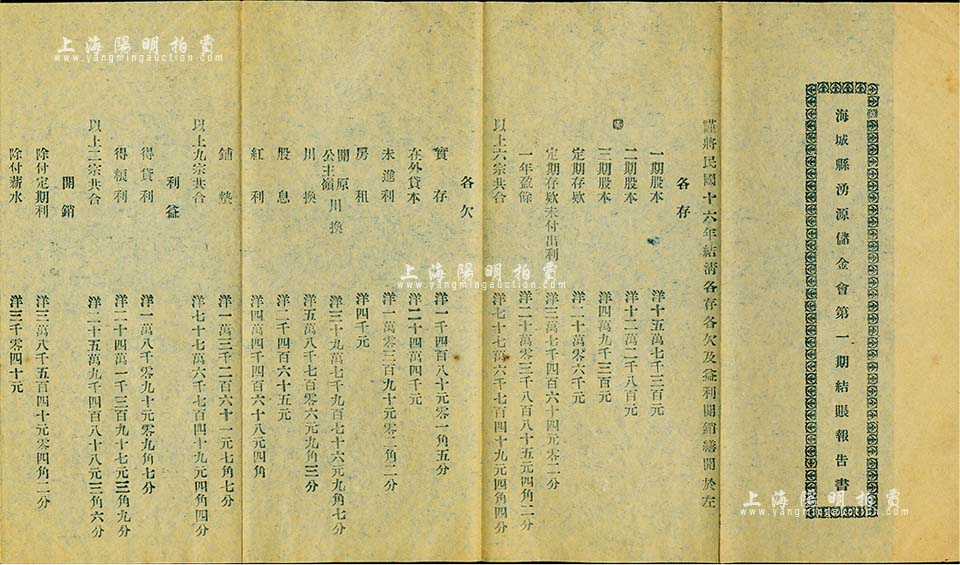 海城縣湧源儲金會第一期結賬報告書
謹將民國十六年結清各存各欠及益利開銷繕開於左
各存
一期股本 洋十五萬七千三百元
二期股本 洋十二萬二千八百元
三期股本 洋四萬九千三百元
定期存欵 洋二十萬零六千元
定期存欵未付出利 洋三萬七千四百六十四元零二分
一年盈餘 洋二十萬零三千八百八十五元四角二分
以上六宗共合 洋七十七萬六千七百四十九元四角四分
各欠
實存 洋一千四百八十元零一角五分
在外貸本 洋二十四萬四千元
未進利 洋一萬零三百九十元零二角二分
房租 洋四千元
開原公主嶺川換 洋三十九萬七千九百七十六元九角七分
川換 洋五萬八千七百零六元九角三分
股息 洋二千四百六十五元
紅利 洋四萬四千四百六十八元四角
鋪墊 洋一萬三千二百六十一元七角七分
以上九宗共合 洋七十七萬六千七百四十九元四角四分
利益
得貸利 洋一萬八千零九十元零九角七分
得粮利 洋二十四萬一千三百九十七元三角九分
以上二宗共合 洋二十五萬九千四百八十八元三角六分
開銷
除付定期利 洋三萬八千五百四十元零四角二分
除付薪水 洋三千零四十元
上海陽明拍賣
www.yangmingauction.com
上海陽明拍賣
www.yangmingauction.com
上海陽明拍賣
www.yangmingauction.com